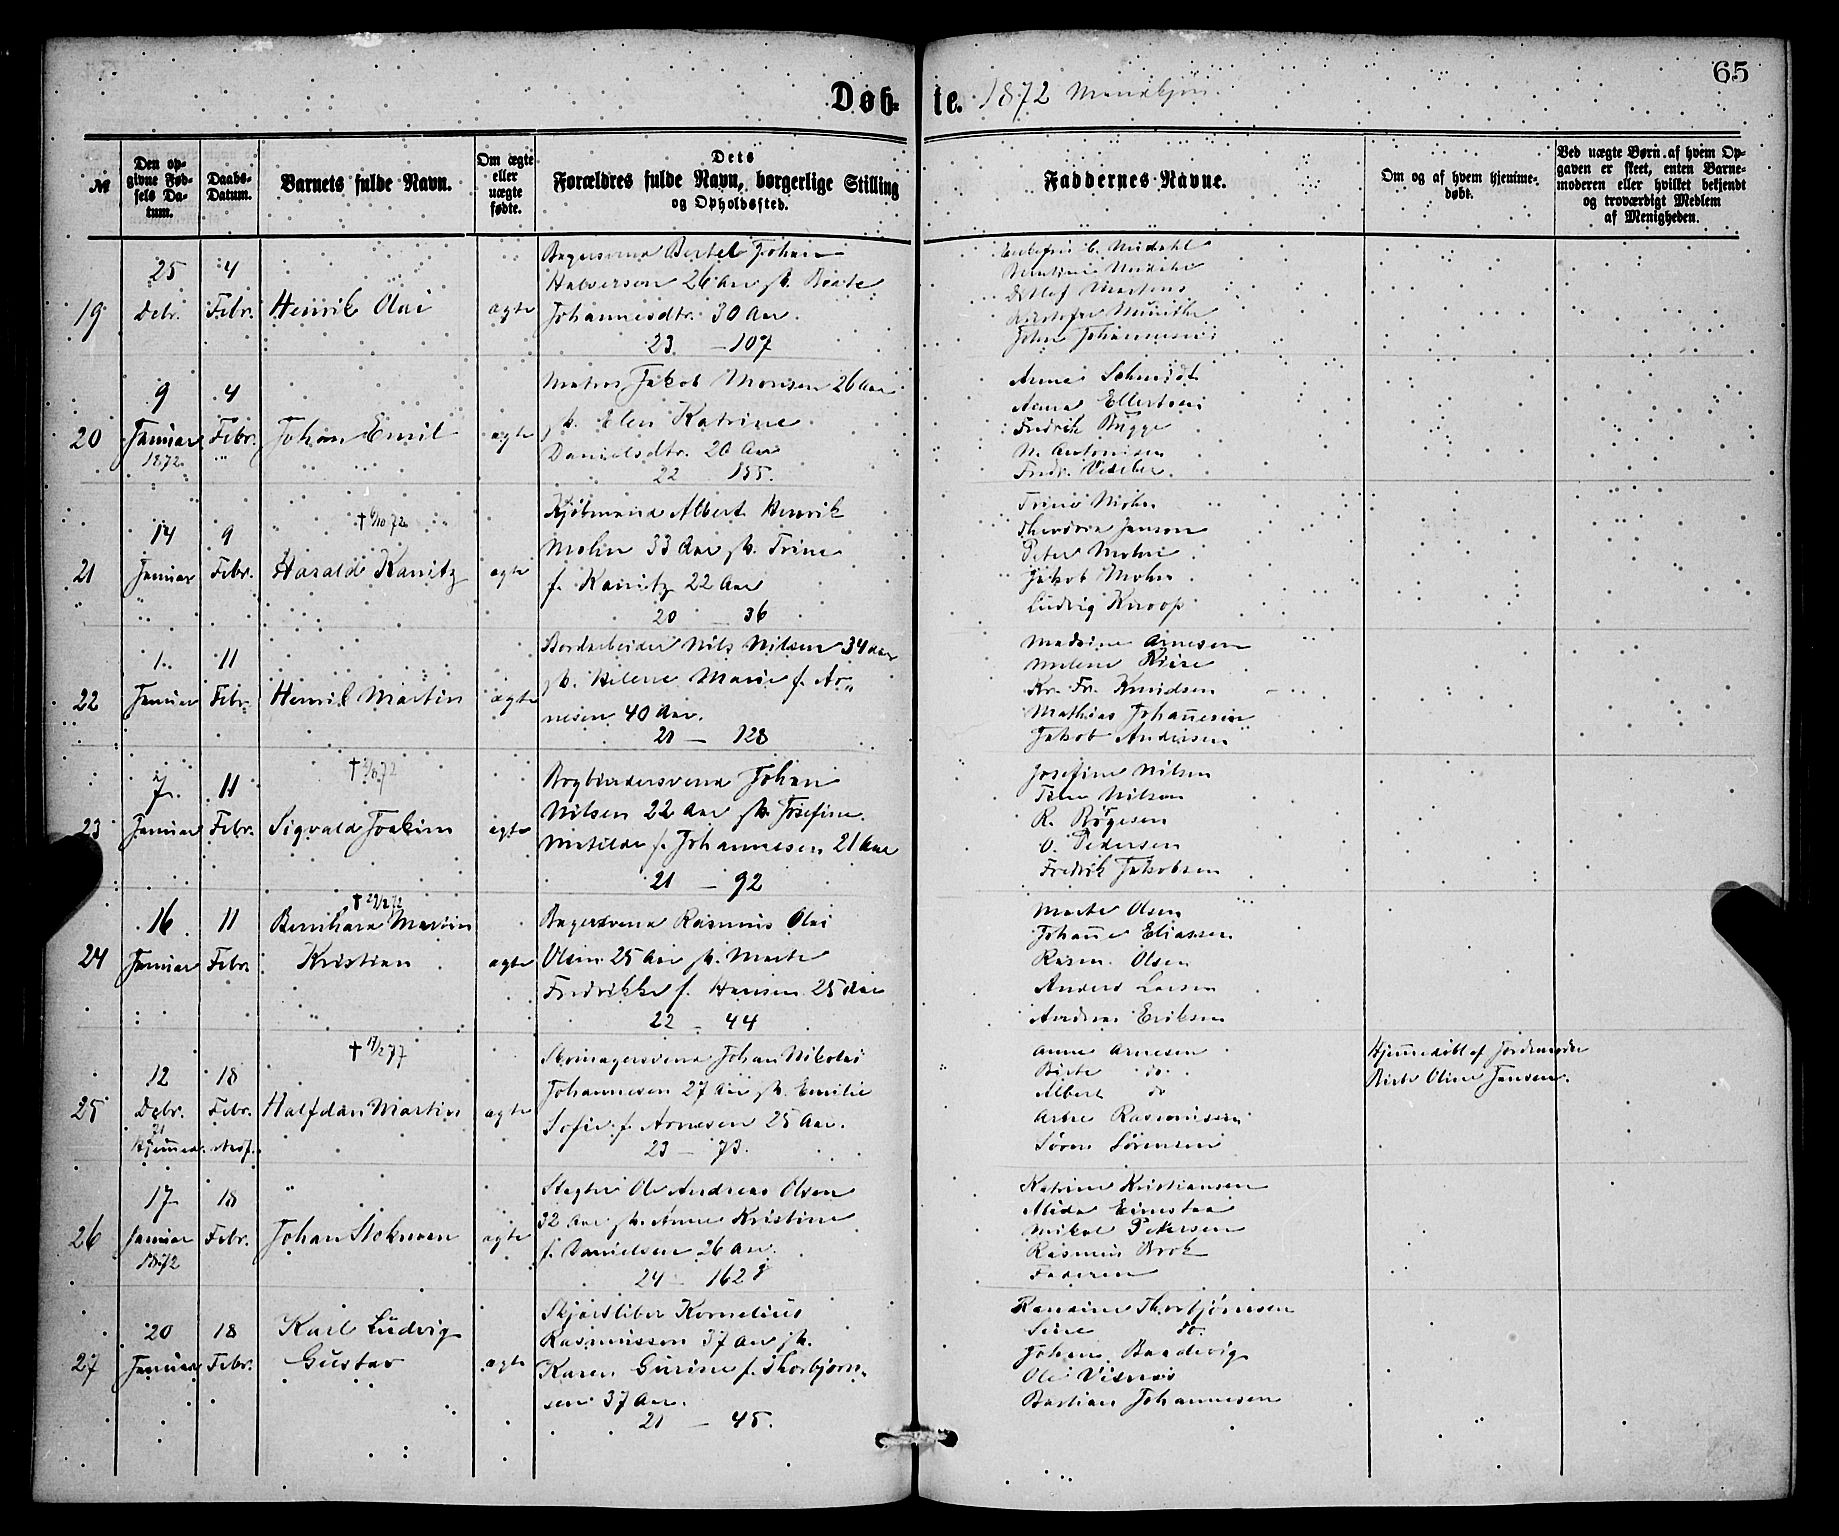 65
Døb-
te. 1872
№
Den op-
givne Fød-
sels Da-
tum.
Daabs-
Datum.
Barnets fulde Navn.
Om ægte
eller
uægte
fødte.
Dets
Forældres fulde Navn, borgerlige Stilling
og Opholdssted.
Faddernes Navne.
Om og af hvem hjemme-
døbt.
Ved uægte Børn, af hvem Op-
gaven er skeet, enten Barne-
moderen eller hvilket bekjendt
og troværdigt Medlem
af Menigheden.
19
25
Debr.
4
Febr.
Henrik Olai
ægte
Bagersvend Bertel Johan
Halvorsen 26 Aar Berte
Johannesdtr. 30 Aar.
23 - 107
Detlef Martens
John Johannesen
20
9
Januar
1872
4
Febr.
"
Johan Emil
ægte
Matros Jakob Monsen 26 Aar
Elen Katrine
Danielsdtr. 20 Aar
22 155.
Anna Schmidt
Anna Ellertsen
Fredrik Bugge
N. Antonisen
Fredr.
21
14
Januar
9
Febr.
† 6/10 72
Harald Kanitz
ægte
Kjøbmand Albert Henrik
Mohn 33 Aar Trine
f. Kanitz 22 Aar
20 36
Trine Mohn
Theodora Janson
Peter Mohn
Jakob Mohn
Ludvig Knoop
22
1.
Januar
11
Febr.
Henrik Martin
ægte
Bordarbeider Nils Nilsen 34 Aar
Helene Marie f. Ar„
nesen 40 Aar.
21 - 128
Madsine Arnesen
Milene
Kr. Fr. Knudsen
Mathias Johannesen
Jakob Andersen
23
7.
Januar
11
Febr.
Sigvald Joakim
ægte
Bogbindersvend Johan
Nilsen 22 Aar Josefine
Matilde f. Johannesen 21 Aar
21 - 92
Josefine Nilsen
Nilsen
R. Røgesen
O. Pedersen
Fredrik Jakobsen
24
16
Januar
11
Febr.
Bernhard Martin
Kristian
ægte
Bagersvend Rasmus Olai
Olsen 25 Aar Marte
Fredrikke f. Hansen 25 Aar
22 - 44
Marte Olsen
Johanne Eliassen
Rasm. Olsen
Anders Larsen
Andreas Eriksen
25
12
Debr.
21
Hjemmed.
18
Febr.
† 17/2 77
Halfdan Martin
ægte
Skomagersvend Johan Nikolai
Johannesen 27 Aar Emilie
Sofie f. Arnesen 25 Aar.
23 - 73.
Anne Arnesen
Birte do.
Albert do
Arne Rasmussen
Søren Sørensen
Hjemmedøbt af Jordemoder
Birte Oline Jansen.
26
17
Januar
1872
18
Febr.
"
Johan
ægte
Slagter Ole Andreas Olsen
32 Aar Anne Kristine
f. Danielsen 26 Aar.
24 - 162
Katrine Kristiansen
Alida
Mikal Pedersen
Rasmus Brok
Faderen
27
20
Januar
18
Febr.
Karl Ludvig
Gustav
ægte
Kornelius
Rasmussen 37 Aar
Karen Gurine f. Thorbjørn„
sen 37 Aar.
21 - 45.
Thorbjørnsen
Sine do.
Johan Baadevig
Ole Visnes
Bastian Johannesen